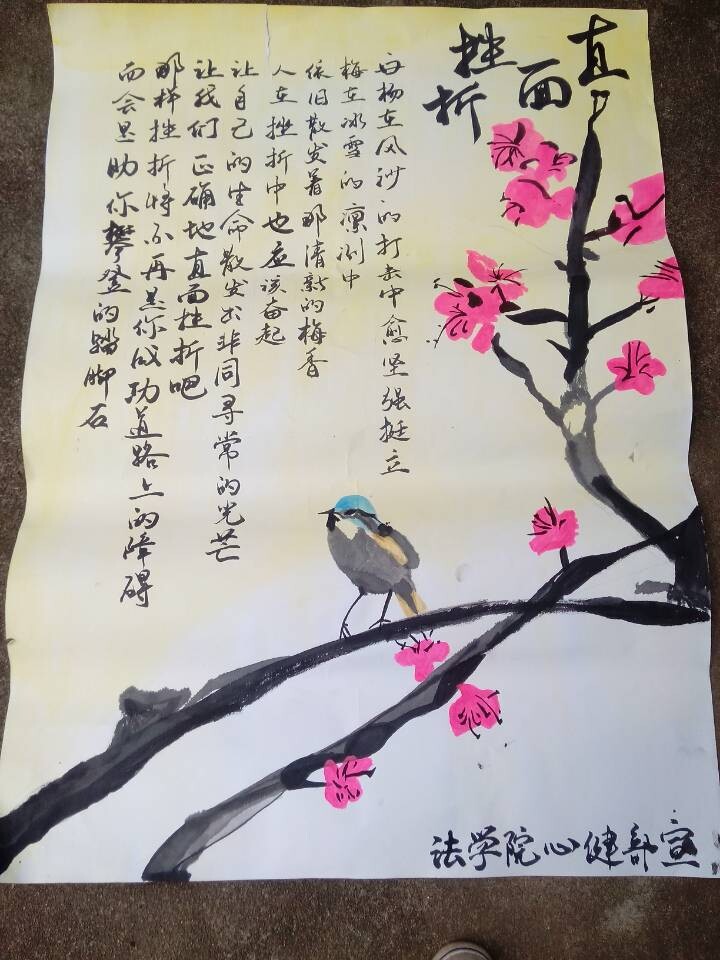 直面
挫折
白杨在风沙的打击中愈坚强挺立
梅在冰雪的凛冽中
依旧散发着那清新的梅香
人在挫折中也应该奋起
让自己的生命散发出非同寻常的光芒
让我们正确地直面挫折吧
那样挫折将不再是你成功道路上的障碍
而会是助你攀登的踏脚石
法学院心健部宣